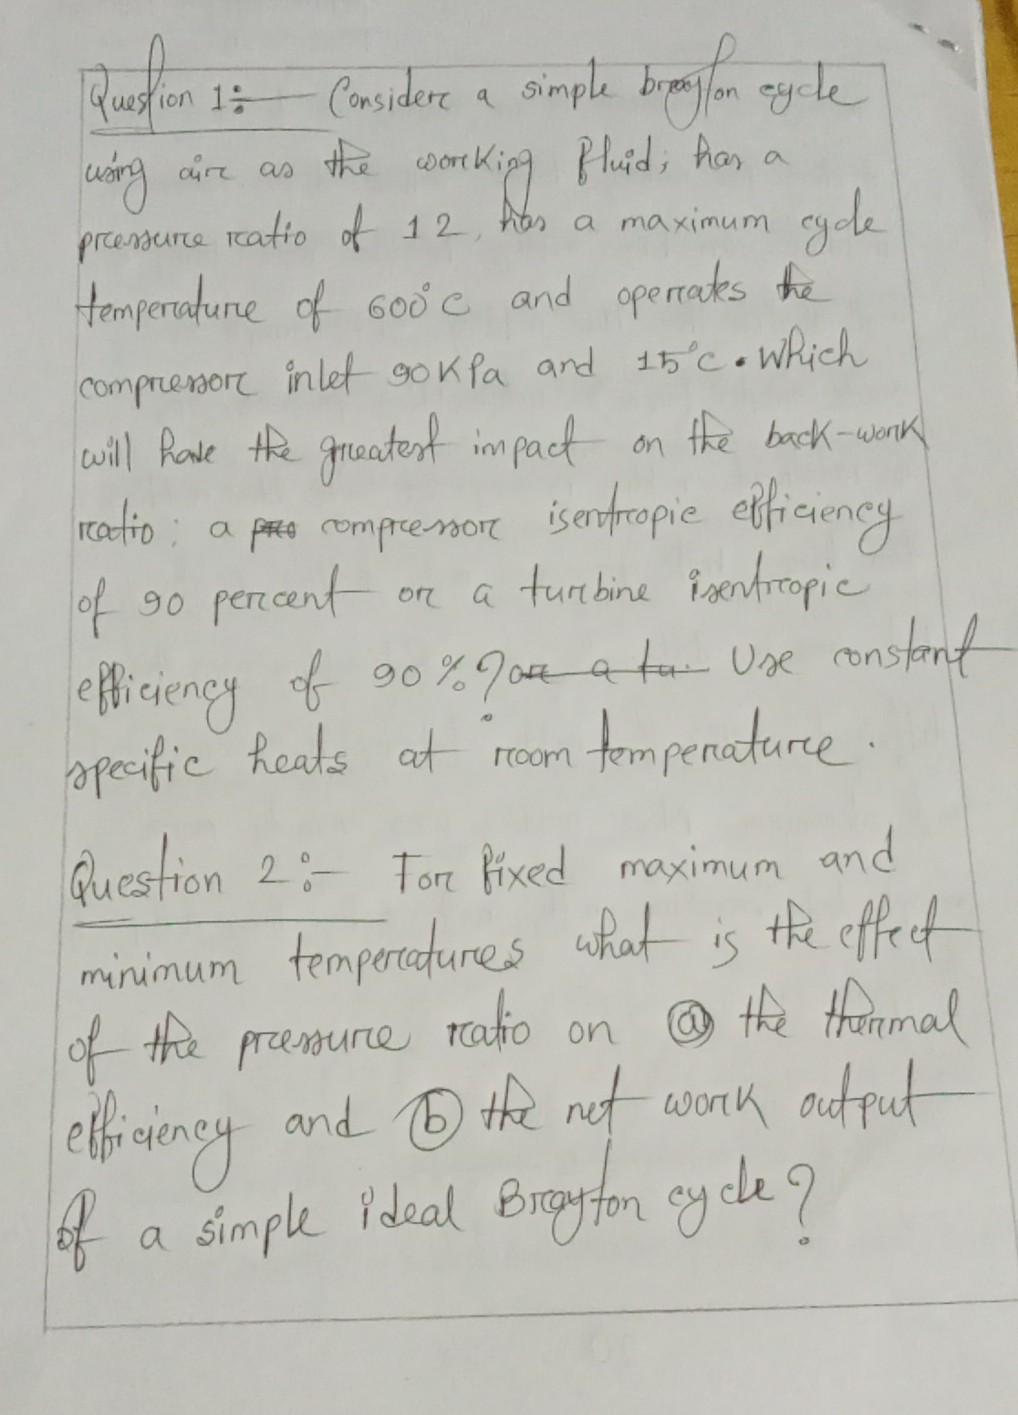 Question 1:- Consider a simple brayton cycle
using air as the working fluid; has a
pressure ratio of 12, has a maximum cycle
temperature of 600°C and operates the
compressor inlet 90KPa and 15°C. Which
will have the greatest impact on the back-work
ratio: a compressor isentropic efficiency
of 90 percent or a turbine isentropic
efficiency of 90%? or a tu Use constant
specific heats at room temperature.
Question 2:- For fixed maximum and
minimum temperatures what is the effect
of the pressure ratio on ⓐ the thermal
efficiency and ⓑ the net work output
of a simple ideal Brayton cycle?